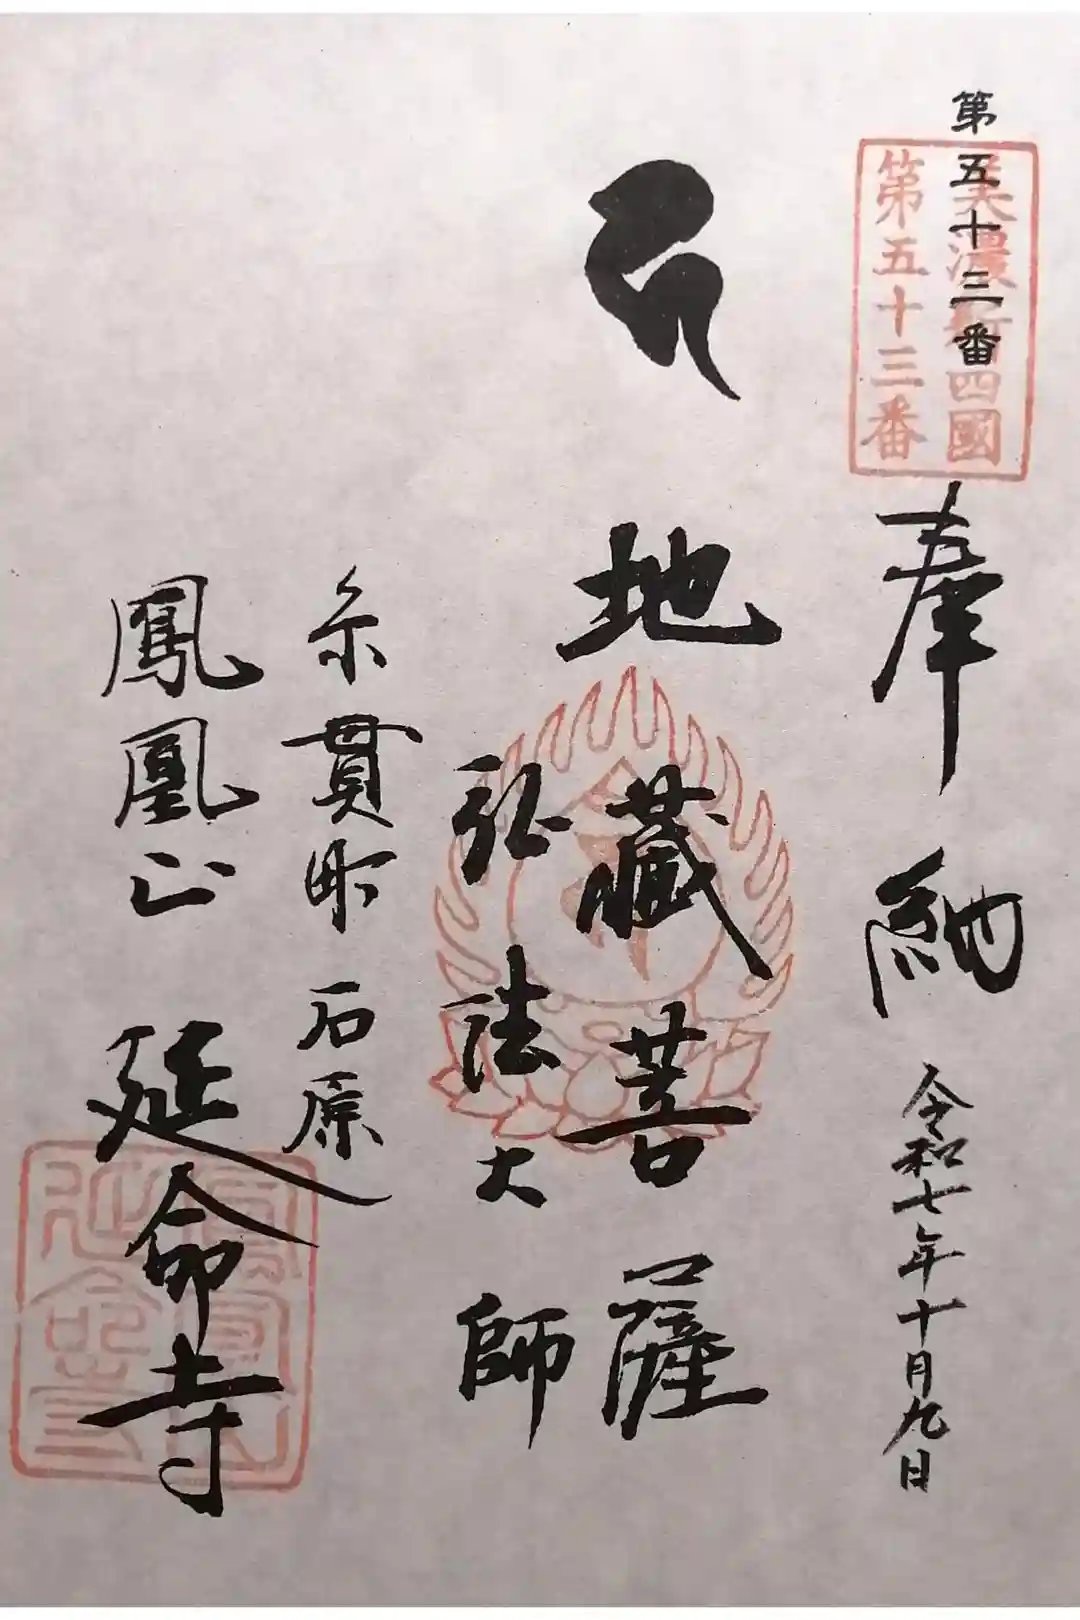 第五十三番
美濃新四國
第五十三番
奉納
令和七年十月九日
地藏菩薩
弘法大師
糸貫町石原
鳳凰山
延命寺